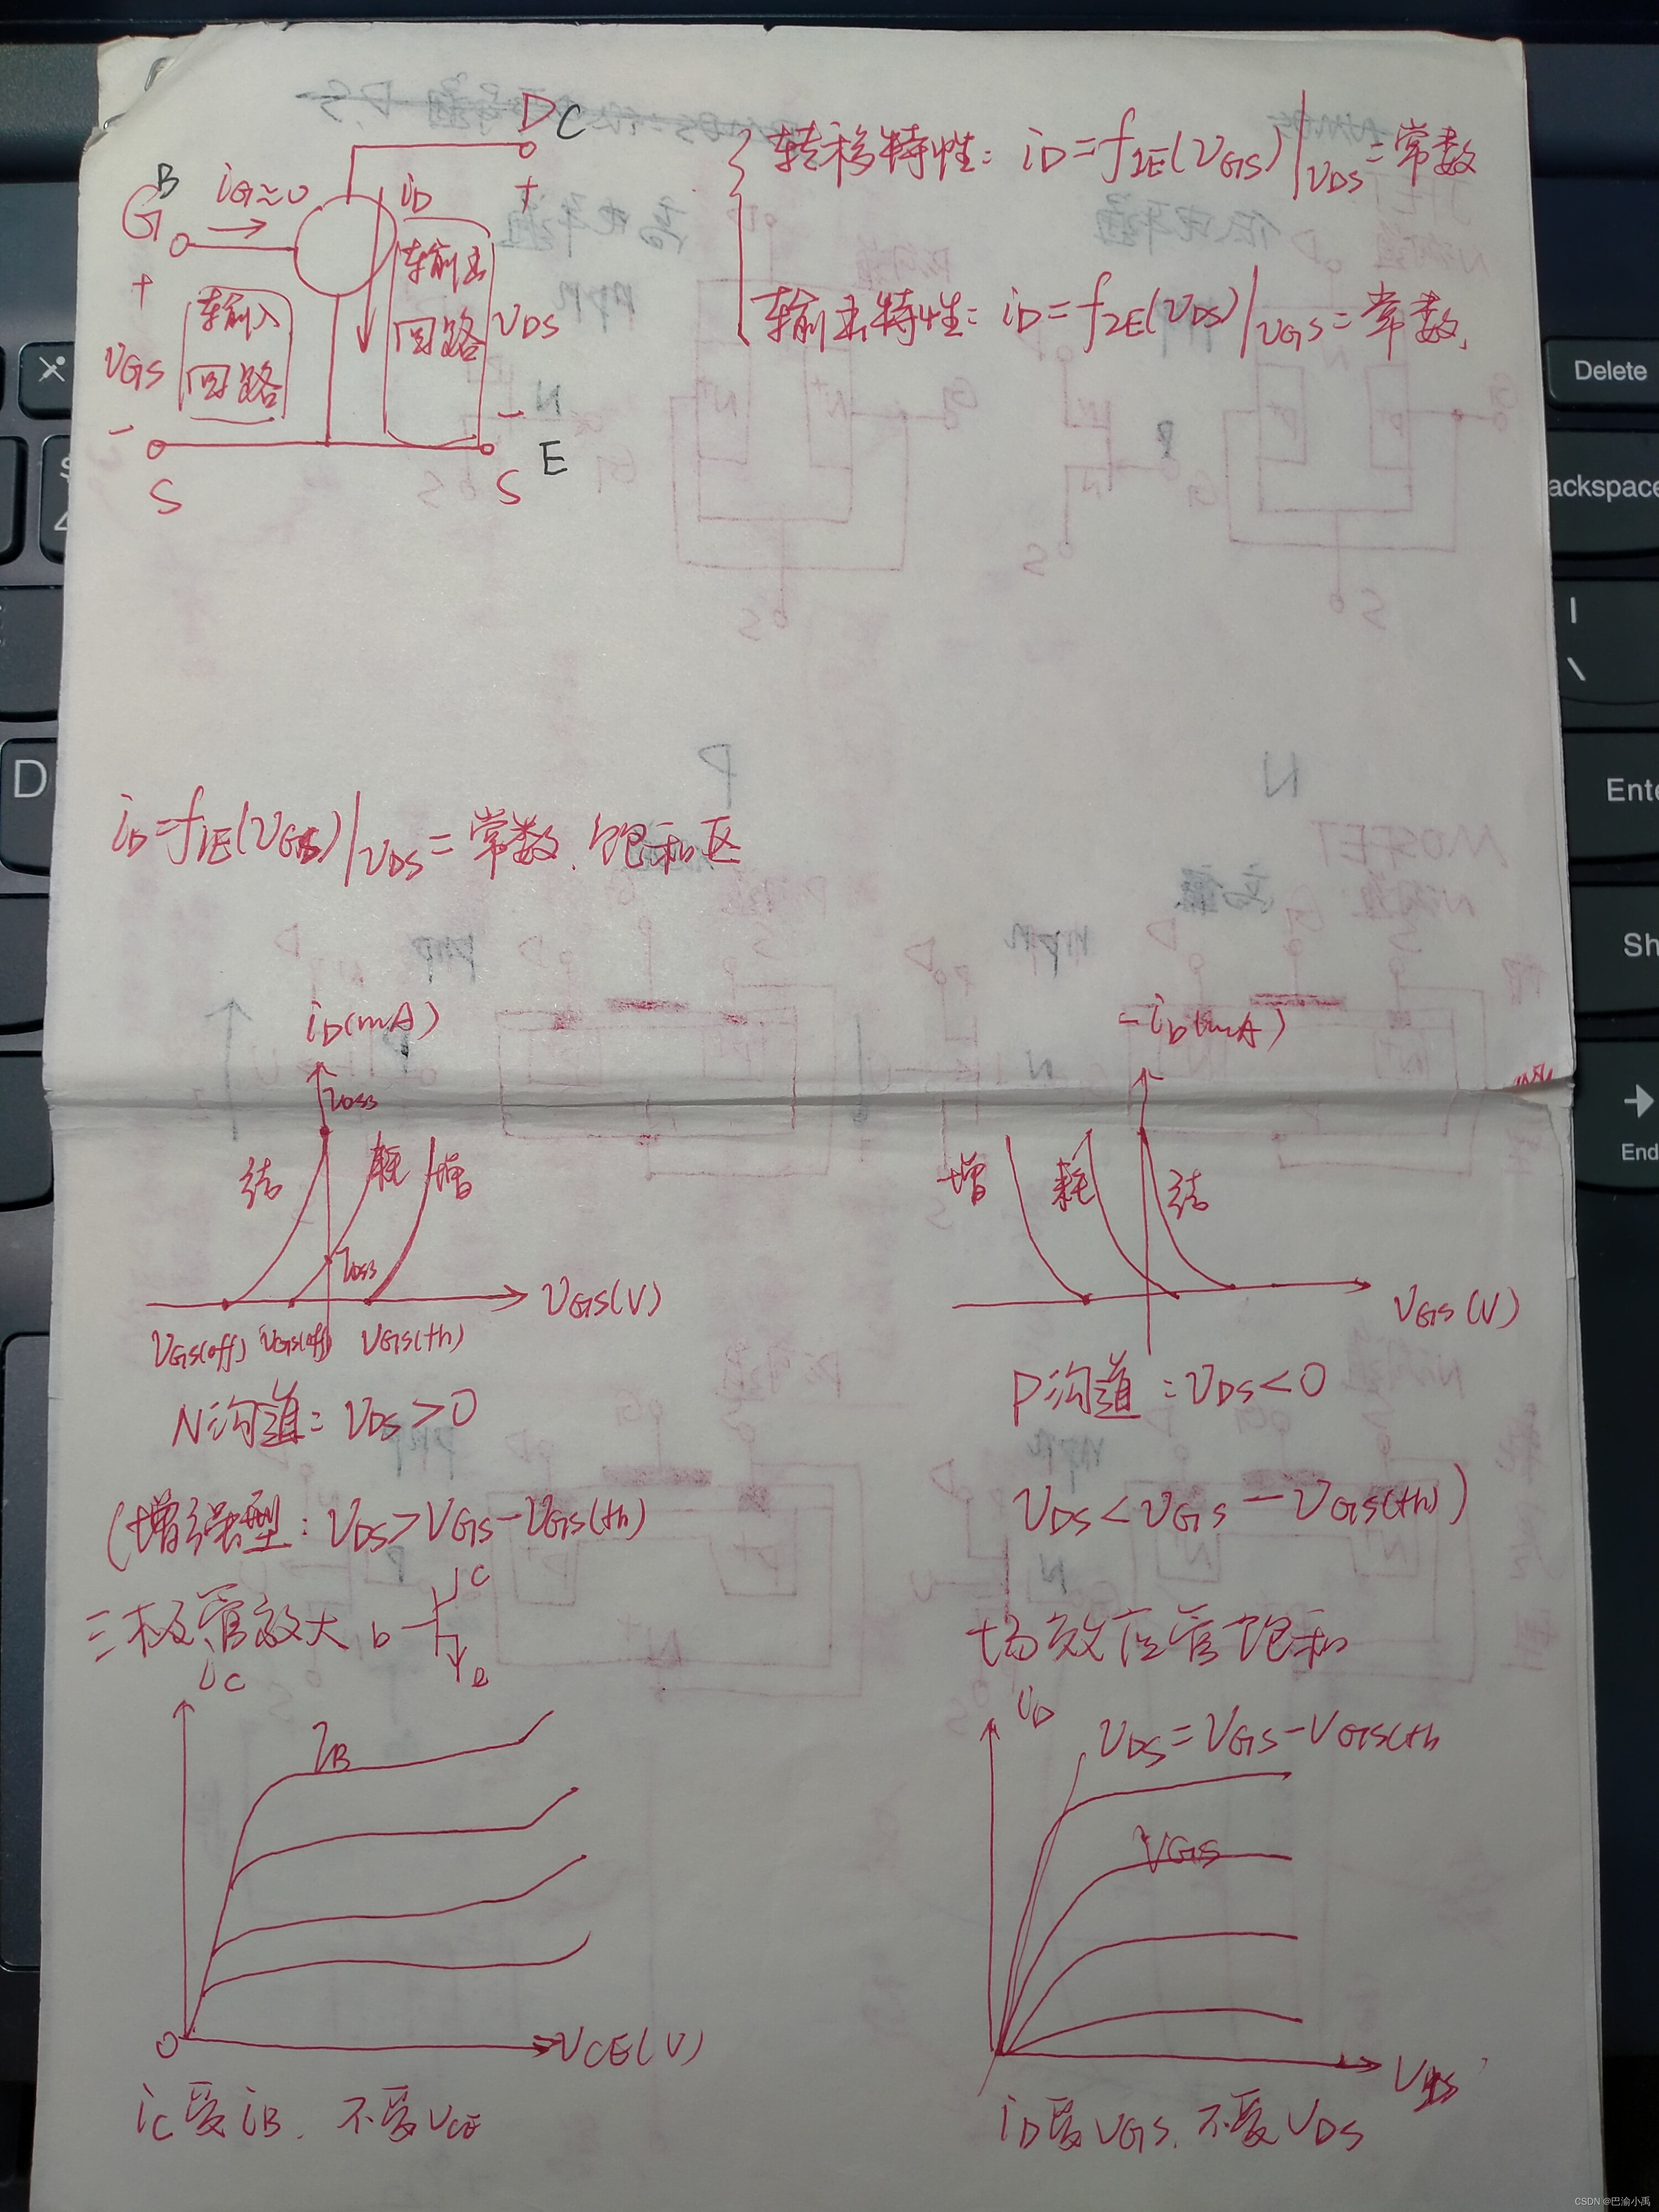 D C
B
G
iG≈0
iD
+
+
输入
回路
输出
回路
VGS
VDS
-
-
S
S
E
转移特性: iD=f1E(VGS)|VDS=常数
输出特性: iD=f2E(VDS)|VGS=常数,
iD=f1E(VGS)|VDS=常数.饱和区
iD(mA)
IDSS
结
耗
增
IDSS
VGS(V)
VGS(off) VGS(off) VGS(th)
N沟道: VDS>0
-iD(mA)
增
耗
结
VGS(V)
P沟道: VDS<0
(增强型: VDS>VGS-VGS(th)
VDS<VGS-VGS(th))
三极管放大
b
c
e
场效应管饱和
iC
IB
O
VCE(V)
iC受iB. 不受VCE
iD
VDS=VGS-VGS(th
VGS
VDS
iD受VGS. 不受VDS
Delete
ackspace
|
\
Ente
Sh
End
D
CSDN @巴渝小禹